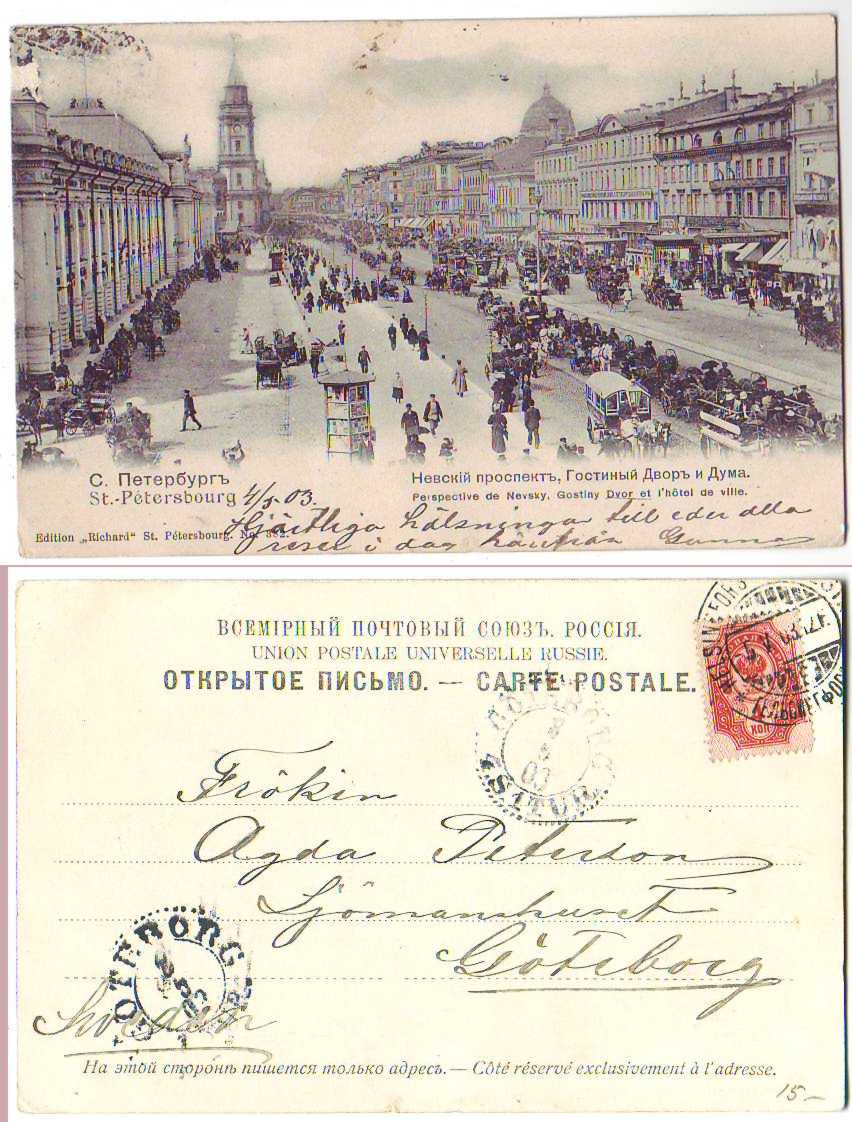 С. Петербургъ
St.-Pétersbourg 4/5 03.
Невскій проспектъ, Гостиный Дворъ и Дума.
Perspective de Nevsky, Gostiny Dvor et l'hôtel de ville.
Hjärtliga hälsningar till eder alla
Edition „Richard" St. Pétersbourg. No. 382.
reser i dag härifrån Gunnar
ВСЕМІРНЫЙ ПОЧТОВЫЙ СОЮЗЪ. РОССІЯ.
UNION POSTALE UNIVERSELLE RUSSIE.
ОТКРЫТОЕ ПИСЬМО. — CARTE POSTALE.
HELSINGFORS
КОП
GÖTEBORG
Frökin
Agda Peterson
Sjömanshuset
Göteborg
GÖTEBORG
Sweden
На этой сторонѣ пишется только адресъ. — Côté réservé exclusivement à l'adresse.
15 —